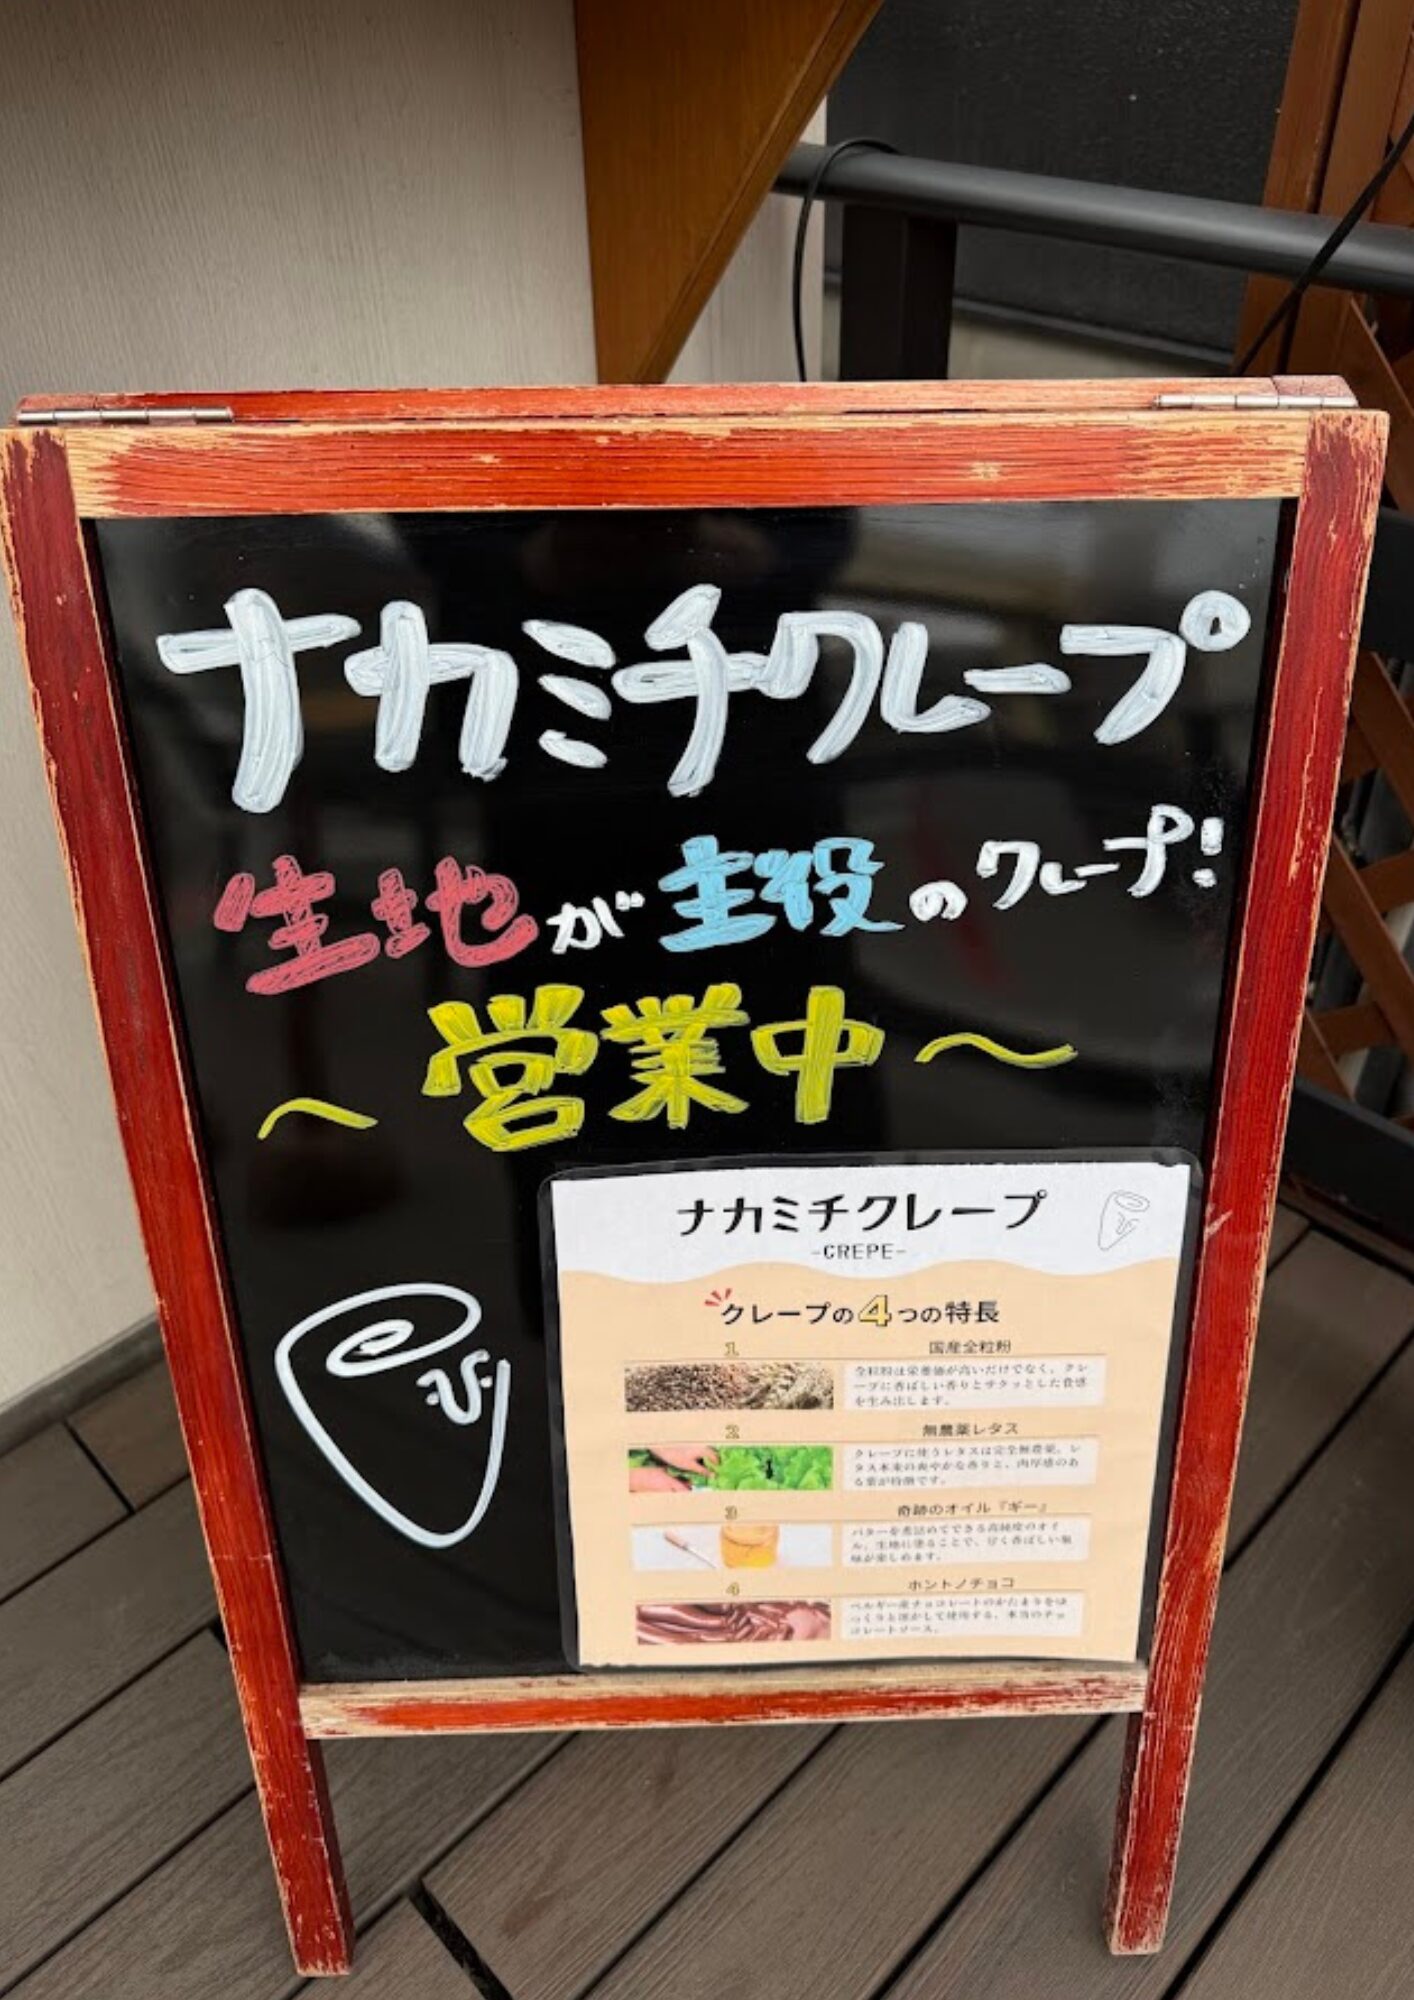 ナカミチクレープ
生地が主役のクレープ!
～営業中～
ナカミチクレープ
-CREPE-
クレープの4つの特長
1
国産全粒粉
全粒粉は栄養価が高いだけでなく、クレ
ープに香ばしい香りとサクッとした食感
を生み出します。
2
無農薬レタス
クレープに使うレタスは完全無農薬。レ
タス本来の爽やかな香りと、肉厚感のあ
る葉が特徴です。
3
奇跡のオイル『ギー』
バターを煮詰めてできる高純度のオイ
ル。生地に塗ることで、甘く香ばしい風
味が楽しめます。
4
ホントノチョコ
ベルギー産チョコレートのかたまりをゆ
っくりと溶かして使用する、本当のチョ
コレートソース。